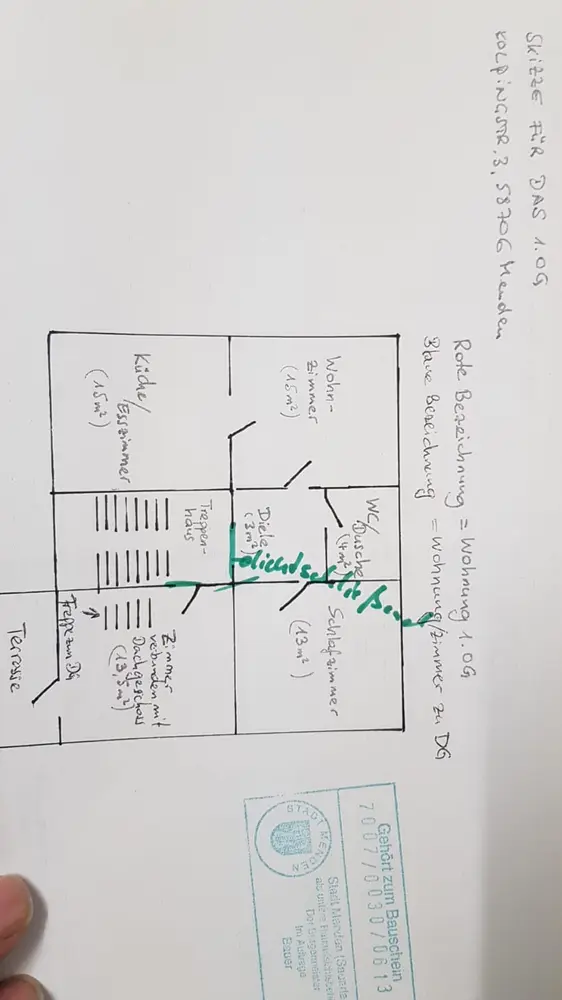 SKIZZE FÜR DAS 1.OG
KOLPINGSTR. 3, 58706 Menden
Rote Bezeichnung = Wohnung 1.OG
Blaue Bezeichnung = Wohnung/Zimmer zu DG
Wohn-
zimmer
(15m²)
WC/
Dusche
(4m²)
Schlafzimmer
(13m²)
Diele
(3m²)
dichtschließend
Küche/
Esszimmer
(15m²)
Treppen-
haus
Zimmer
verbunden mit
Dachgeschoss
(13,5m²)
Treppe zum DG
Terrasse
Gehört zum Bauschein
7007/0030/0613
STADT MENDEN
Stadt Menden
Der Bürgermeister
Im Auftrage
Bauer